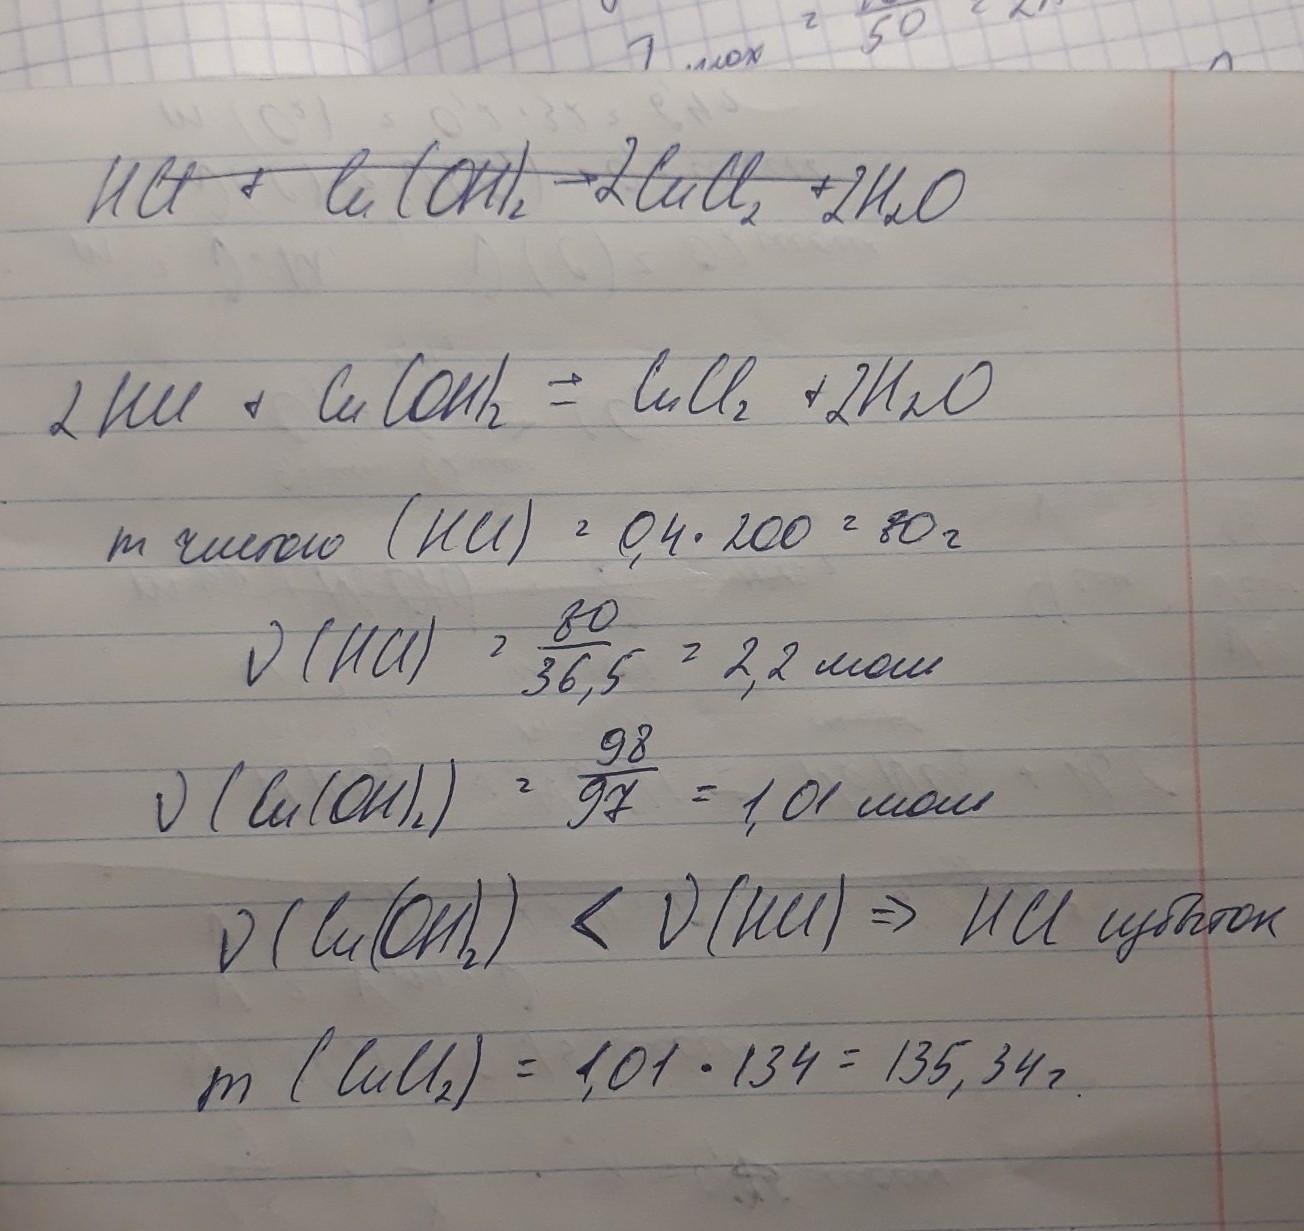 = 50 = 2
1 мах
HCl + Cu(OH)₂ → 2CuCl₂ + 2H₂O
2HCl + Cu(OH)₂ = CuCl₂ + 2H₂O
m чистого (HCl) = 0,4 · 200 = 80 г
ν(HCl) = 80/36,5 = 2,2 моль
ν(Cu(OH)₂) = 98/97 = 1,01 моль
ν(Cu(OH)₂) < ν(HCl) ⇒ HCl избыток
m (CuCl₂) = 1,01 · 134 = 135,34 г.